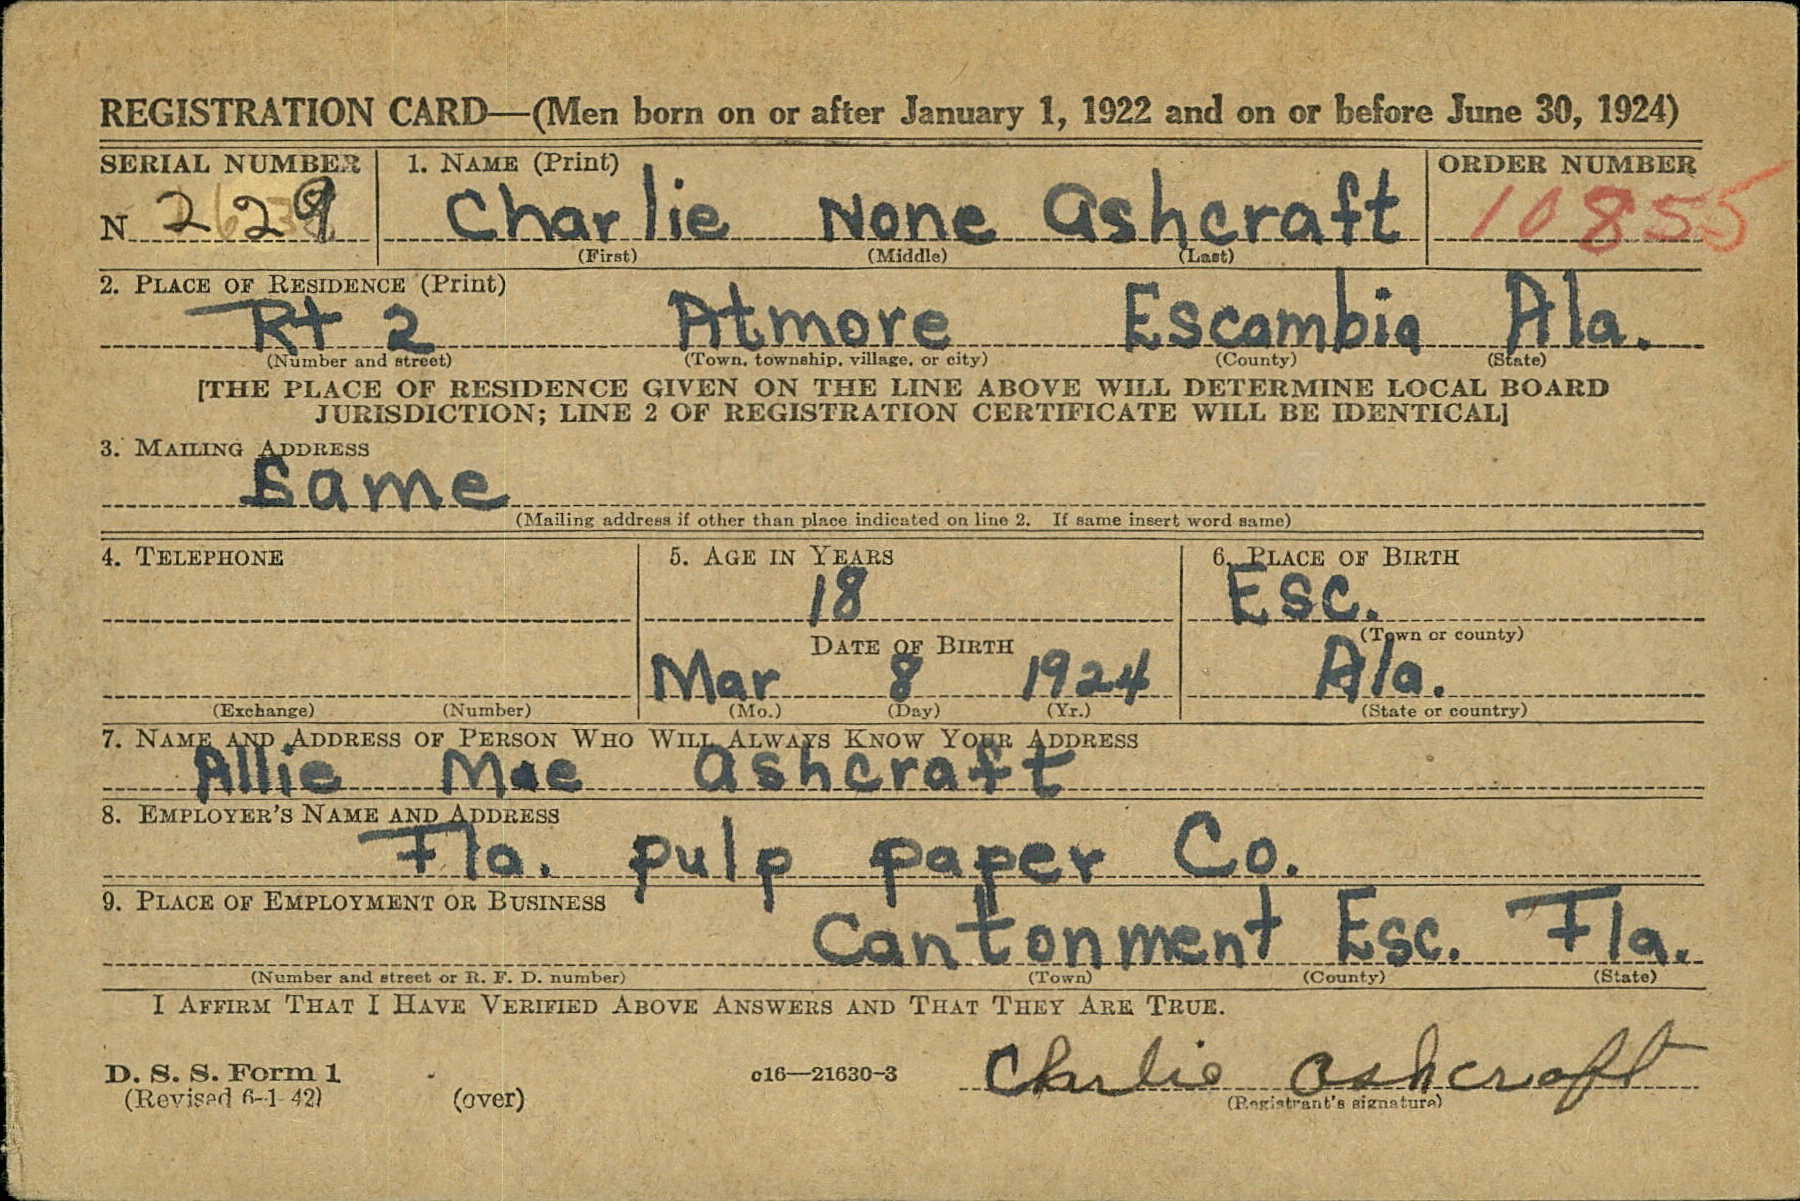 REGISTRATION CARD—(Men born on or after January 1, 1922 and on or before June 30, 1924)
SERIAL NUMBER 1. NAME (Print) ORDER NUMBER
N 229 Charlie None Ashcraft 10855
(First) (Middle) (Last)
2. PLACE OF RESIDENCE (Print)
Rt 2 Atmore Escambia Ala.
(Number and street) (Town, township, village, or city) (County) (State)
[THE PLACE OF RESIDENCE GIVEN ON THE LINE ABOVE WILL DETERMINE LOCAL BOARD
JURISDICTION; LINE 2 OF REGISTRATION CERTIFICATE WILL BE IDENTICAL]
3. MAILING ADDRESS
Same
(Mailing address if other than place indicated on line 2. If same insert word same)
4. TELEPHONE 5. AGE IN YEARS 6. PLACE OF BIRTH
18 Esc.
DATE OF BIRTH (Town or county)
Mar 8 1924 Ala.
(Exchange) (Number) (Mo.) (Day) (Yr.) (State or country)
7. NAME AND ADDRESS OF PERSON WHO WILL ALWAYS KNOW YOUR ADDRESS
Allie Mae Ashcraft
8. EMPLOYER'S NAME AND ADDRESS
Fla. pulp paper Co.
9. PLACE OF EMPLOYMENT OR BUSINESS
Cantonment Esc. Fla.
(Number and street or R. F. D. number) (Town) (County) (State)
I AFFIRM THAT I HAVE VERIFIED ABOVE ANSWERS AND THAT THEY ARE TRUE.
D. S. S. Form 1 c16—21630-3 Charlie Ashcraft
(Revised 6-1-42) (over) (Registrant's signature)